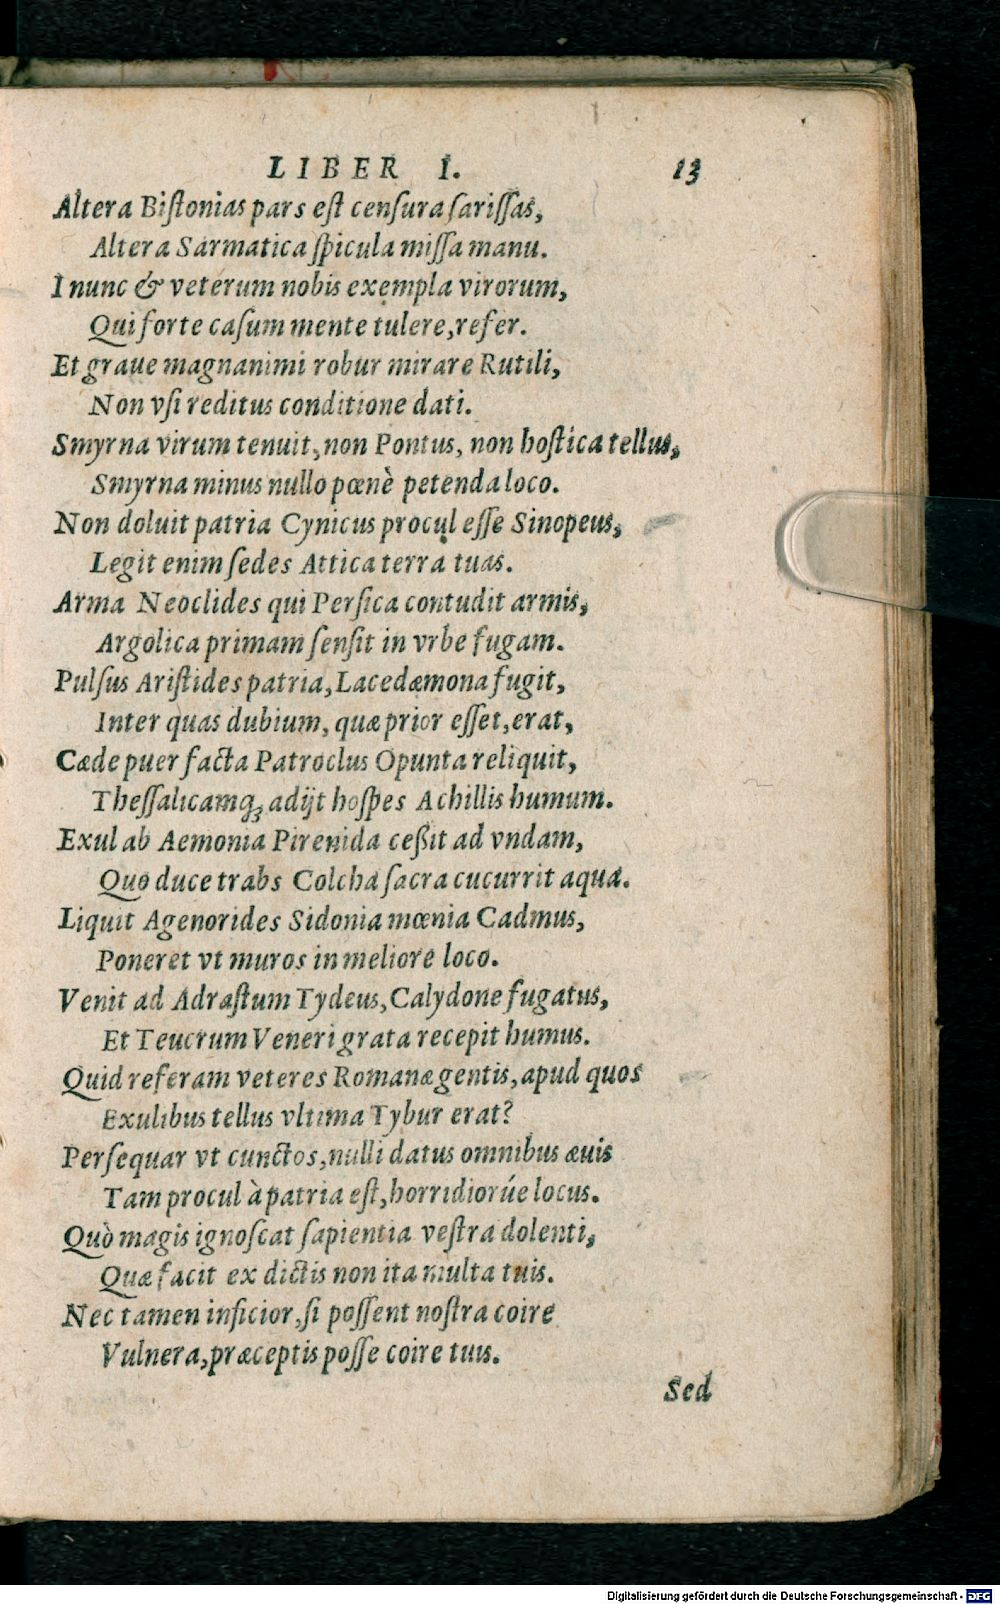 LIBER I. 13
Altera Biſtonias pars eſt cenſura ſariſſas,
Altera Sarmatica ſpicula miſſa manu.
I nunc & veterum nobis exempla virorum,
Qui forte caſum mente tulere, refer.
Et graue magnanimi robur mirare Rutili,
Non vſi reditus conditione dati.
Smyrna virum tenuit, non Pontus, non hoſtica tellus,
Smyrna minus nullo pœnè petenda loco.
Non doluit patria Cynicus procul eſſe Sinopeus,
Legit enim ſedes Attica terra tuas.
Arma Neoclides qui Perſica contudit armis,
Argolica primam ſenſit in vrbe fugam.
Pulſus Ariſtides patria, Lacedæmona fugit,
Inter quas dubium, quæ prior eſſet, erat,
Cæde puer facta Patroclus Opunta reliquit,
Theſſalicamq́; adijt hoſpes Achillis humum.
Exul ab Aemonia Pirenida ceßit ad vndam,
Quo duce trabs Colcha ſacra cucurrit aqua.
Liquit Agenorides Sidonia mœnia Cadmus,
Poneret vt muros in meliore loco.
Venit ad Adraſtum Tydeus, Calydone fugatus,
Et Teucrum Veneri grata recepit humus.
Quid referam veteres Romanæ gentis, apud quos
Exulibus tellus vltima Tybur erat?
Perſequar vt cunctos, nulli datus omnibus æuis
Tam procul à patria eſt, horridiorúe locus.
Quò magis ignoſcat ſapientia veſtra dolenti,
Quæ facit ex dictis non ita multa tuis.
Nec tamen inficior, ſi poſſent noſtra coire
Vulnera, præceptis poſſe coire tuis.
Sed
Digitalisierung gefördert durch die Deutsche Forschungsgemeinschaft - DFG